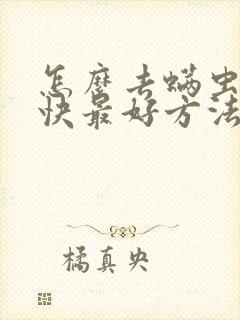 怎麽去螨虫
快最好方法
橘真央